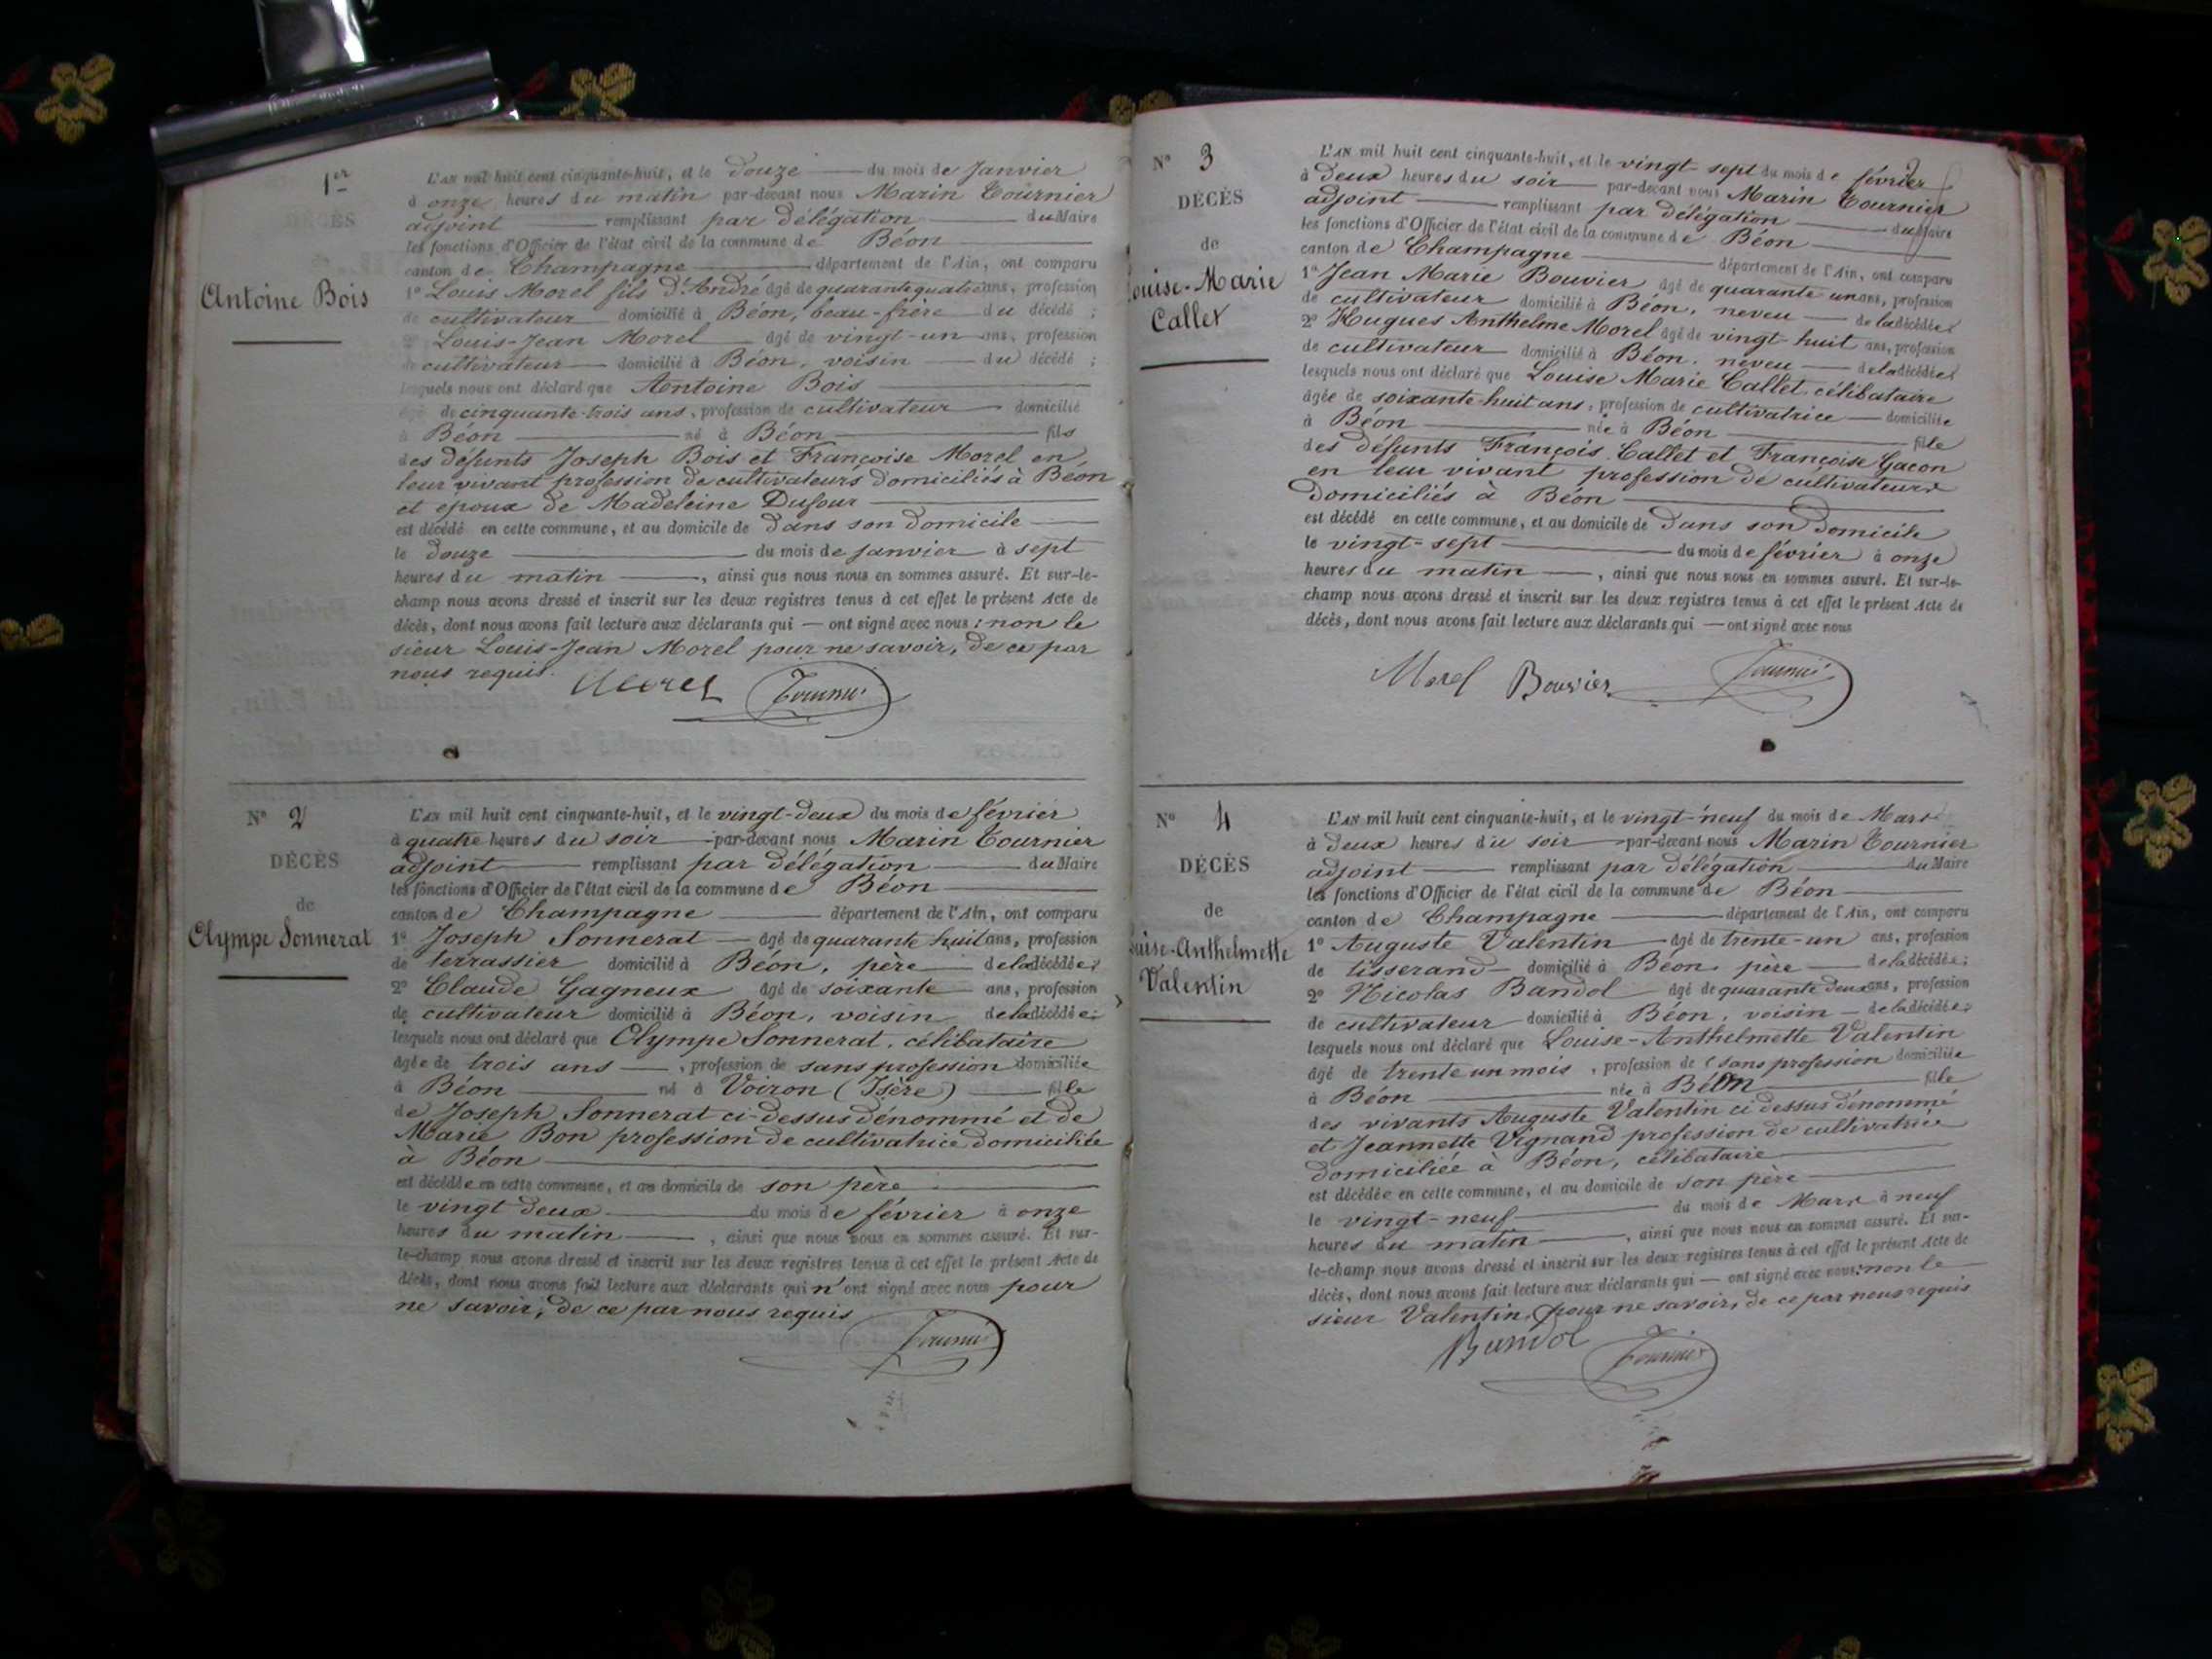 1er
DÉCÈS
Antoine Bois
L'AN mil huit cent cinquante-huit, et le douze du mois de Janvier
à onze heures du matin par-devant nous Marin Tournier
adjoint remplissant par délégation du Maire
les fonctions d'Officier de l'état civil de la commune de Béon
canton de Champagne département de l'Ain, ont comparu
1° Louis Morel fils d'André âgé de quarante quatre ans, profession
de cultivateur domicilié à Béon, beau-frère du décédé ;
2° Louis-Jean Morel âgé de vingt-un ans, profession
de cultivateur domicilié à Béon, voisin du décédé ;
lesquels nous ont déclaré que Antoine Bois
âgé de cinquante-trois ans, profession de cultivateur domicilié
à Béon né à Béon fils
des défunts Joseph Bois et Françoise Morel en
leur vivant profession de cultivateurs domiciliés à Béon
et epoux de Madeleine Dufour
est décédé en cette commune, et au domicile de dans son domicile
le douze du mois de janvier à sept
heures du matin, ainsi que nous nous en sommes assuré. Et sur-le-
champ nous avons dressé et inscrit sur les deux registres tenus à cet effet le présent Acte de
décès, dont nous avons fait lecture aux déclarants qui — ont signé avec nous ; non le
sieur Louis-Jean Morel pour ne savoir, de ce par
nous requis.
Morel Tournier
N° 2
DÉCÈS
de
Olympe Sonnerat
L'AN mil huit cent cinquante-huit, et le vingt-deux du mois de février
à quatre heures du soir par-devant nous Marin Tournier
adjoint remplissant par délégation du Maire
les fonctions d'Officier de l'état civil de la commune de Béon
canton de Champagne département de l'Ain, ont comparu
1° Joseph Sonnerat âgé de quarante huit ans, profession
de terrassier domicilié à Béon, père de la décédée ;
2° Claude Gagneux âgé de soixante ans, profession
de cultivateur domicilié à Béon, voisin de la décédée ;
lesquels nous ont déclaré que Olympe Sonnerat, célibataire
âgée de trois ans, profession de sans profession domiciliée
à Béon né à Voiron (Isère) fille
de Joseph Sonnerat ci-dessus dénommé et de
Marie Bon profession de cultivatrice domiciliée
à Béon
est décédée en cette commune, et au domicile de son père
le vingt deux du mois de février à onze
heures du matin, ainsi que nous nous en sommes assuré. Et sur-
le-champ nous avons dressé et inscrit sur les deux registres tenus à cet effet le présent Acte de
décès, dont nous avons fait lecture aux déclarants qui n'ont signé avec nous pour
ne savoir, de ce par nous requis
Tournier
N° 3
DÉCÈS
de
Louise-Marie
Callet
L'AN mil huit cent cinquante-huit, et le vingt sept du mois de février
à deux heures du soir par-devant nous Marin Tournier
adjoint remplissant par délégation du Maire
les fonctions d'Officier de l'état civil de la commune de Béon
canton de Champagne département de l'Ain, ont comparu
1° Jean Marie Bouvier âgé de quarante un ans, profession
de cultivateur domicilié à Béon, neveu de la décédée ;
2° Hugues Anthelme Morel âgé de vingt-huit ans, profession
de cultivateur domicilié à Béon, neveu de la décédée ;
lesquels nous ont déclaré que Louise Marie Callet, célibataire
âgée de soixante-huit ans, profession de cultivatrice domiciliée
à Béon née à Béon fille
des défunts François Callet et Françoise Gacon
en leur vivant profession de cultivateurs
domiciliés à Béon
est décédé en cette commune, et au domicile de dans son domicile
le vingt-sept du mois de février à onze
heures du matin, ainsi que nous nous en sommes assuré. Et sur-le-
champ nous avons dressé et inscrit sur les deux registres tenus à cet effet le présent Acte de
décès, dont nous avons fait lecture aux déclarants qui — ont signé avec nous
Morel Bouvier Tournier
N° 4
DÉCÈS
de
Louise-Anthelmette
Valentin
L'AN mil huit cent cinquante-huit, et le vingt-neuf du mois de Mars
à deux heures du soir par-devant nous Marin Tournier
adjoint remplissant par délégation du Maire
les fonctions d'Officier de l'état civil de la commune de Béon
canton de Champagne département de l'Ain, ont comparu
1° Auguste Valentin âgé de trente-un ans, profession
de tisserand domicilié à Béon père de la décédée ;
2° Nicolas Bandol âgé de quarante deux ans, profession
de cultivateur domicilié à Béon, voisin de la décédée ;
lesquels nous ont déclaré que Louise-Anthelmette Valentin
âgé de trente un mois, profession de sans profession domiciliée
à Béon née à Béon fille
des vivants Auguste Valentin ci dessus dénommé
et Jeannette Vignand profession de cultivatrice
domiciliée à Béon, célibataire
est décédée en cette commune, et au domicile de son père
le vingt-neuf du mois de Mars à neuf
heures du matin, ainsi que nous nous en sommes assuré. Et sur-
le-champ nous avons dressé et inscrit sur les deux registres tenus à cet effet le présent Acte de
décès, dont nous avons fait lecture aux déclarants qui — ont signé avec nous ; non le
sieur Valentin, pour ne savoir, de ce par nous requis
Bandol Tournier